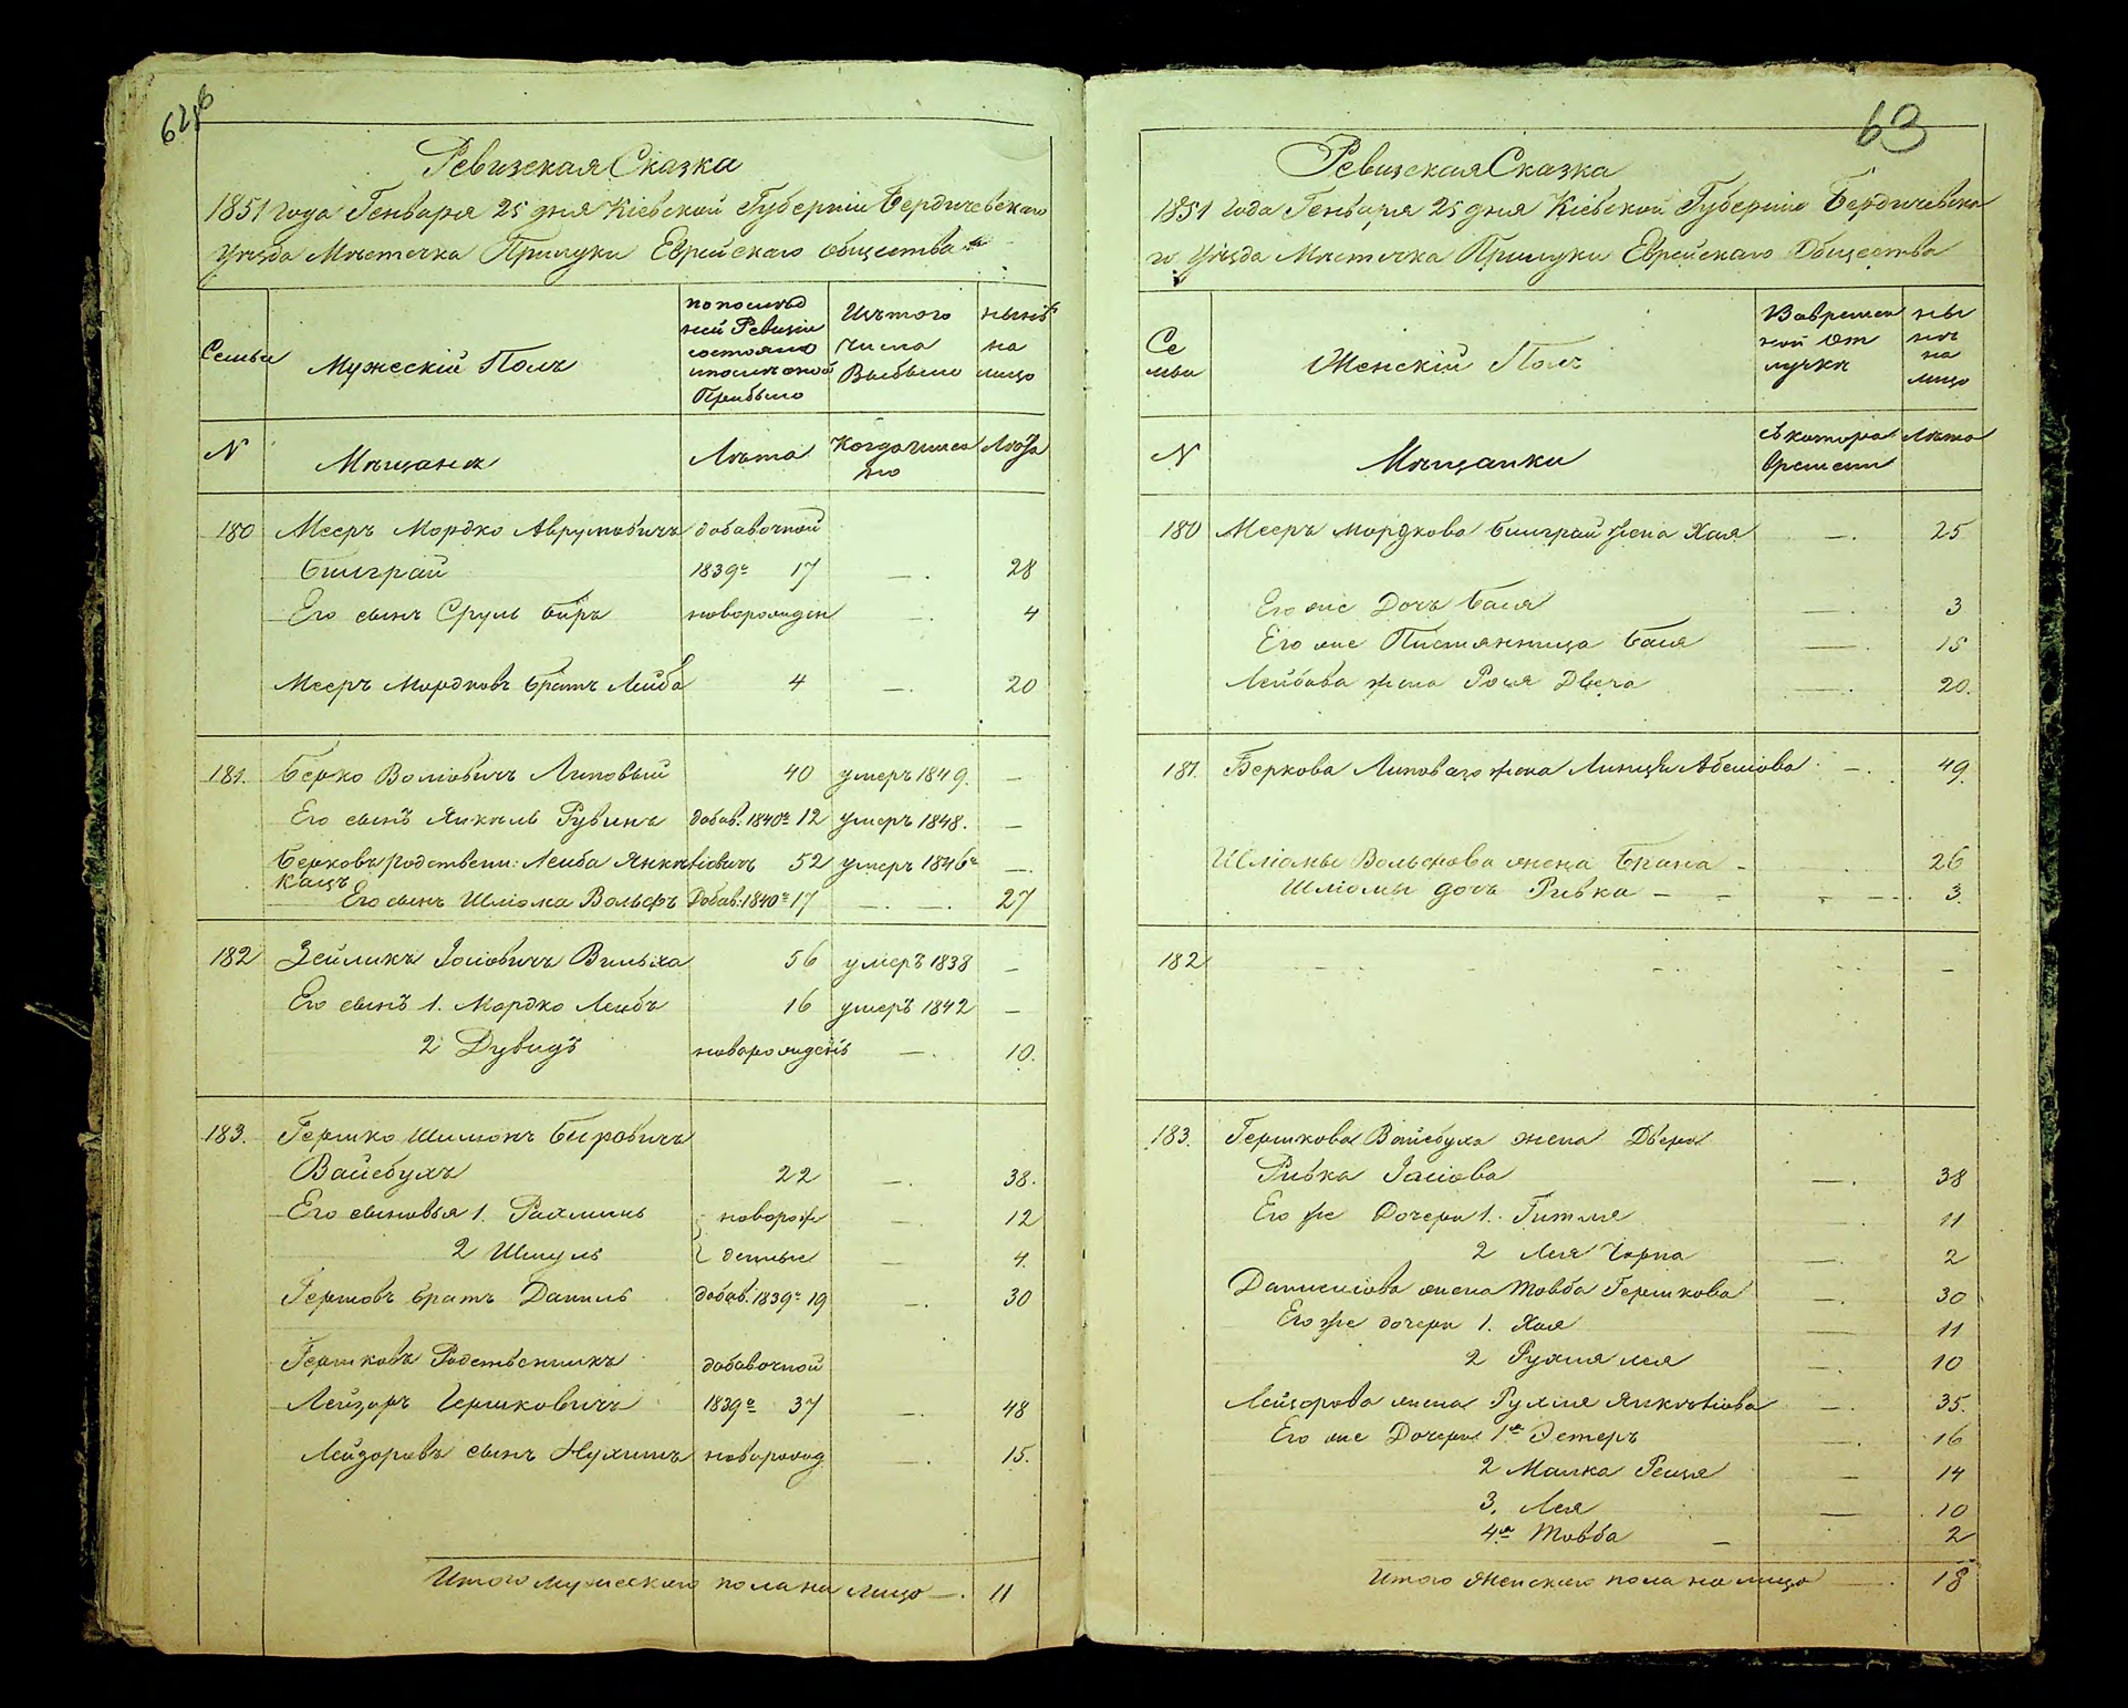 63
Ревизская Сказка
1851 года Генваря 25 дня Кіевской Губерніи Бердичевскаго
Уѣзда Мѣстечка Прилуки Еврейскаго общества
Семьи
Мужескій Полъ
по послѣд
ней Ревизіи
состояло
и послѣ оной
Прибыло
Изъ того
числа
Выбыло
нынѣ
на
лицо
N
Мѣщане
Лѣта
Когда имен
но
Лѣта
180 Мееръ Мордко Аврумовичъ добавочной
Билграй 1839г 17 —. 28
Его сынъ Сруль Беръ новорожден —. 4
Мееръ Мордковъ братъ Лейба 4 —. 20
181. Берко Волковичъ Липовый 40 умеръ 1849. —
Его сынъ Янкель Рувинъ добав. 1840г 12 умеръ 1848. —
Берковъ родствен: Лейба Янкелiовичъ 52 умеръ 1846г —.
Кацъ
Его сынъ Шліома Вольфъ Добав: 1840г 17 —. —. 27
182 Зейликъ Іосіовичъ 56 умеръ 1838 —
Его сынъ 1. Мордко Лейбъ 16 умеръ 1842 —
2 Дувидъ новорожденъ —. 10.
183. Гершко Шимонъ Беровичъ
Вайсбухъ 22 —. 38.
Его сыновья 1. Рахмиль новорож — 12
2 Шмуль денные — 4.
Гершовъ братъ Даниль добав. 1839г 19 —. 30
Гершковъ Родственникъ добавочной
Лейзоръ Гершковичъ 1839г 37 —. 48
Лейзоровъ сынъ Нухимъ заново рожд —. 15.
Итого мужескаго пола на лицо —. 11
Ревизская Сказка
1851 года Генваря 25 дня Кіевской Губерніи Бердичевска
го Уѣзда Мѣстечка Прилуки Еврейскаго Общества
Се
мьи
Женскій Полъ
Во времен
ной от
лучкѣ
ны
нѣ
на
лицо
N
Мѣщанки
съ котора
времени
Лѣта
180 Мееръ Мордкова Билграй жена Хая —. 25
Его же Дочь Бася —. 3
Его же Бася —. 15
Лейбова жена Рося Двера —. 20.
181. Беркова Липоваго жена —. 49.
Шліомы Вольфова жена Брана - 26
Шліомы дочь Ривка - - 3.
182 —
183. Гершкова Вайсбуха жена Двера
Ривка Іосіова —. 38
Его же Дочери 1. Гитля 11
2 Лея Чорна —. 2
Данилiова жена Товба Гершкова —. 30
Его же дочери 1. Хая — 11
2 Рухля Лея —. 10
Лейзорова жена Рухля Янкелiова —. 35.
Его же Дочери 1я Эстеръ —. 16
2 Малка Рейзя — 14
3. Лея — 10
4я Товба — 2
Итого Женскаго пола на лицо —. 18